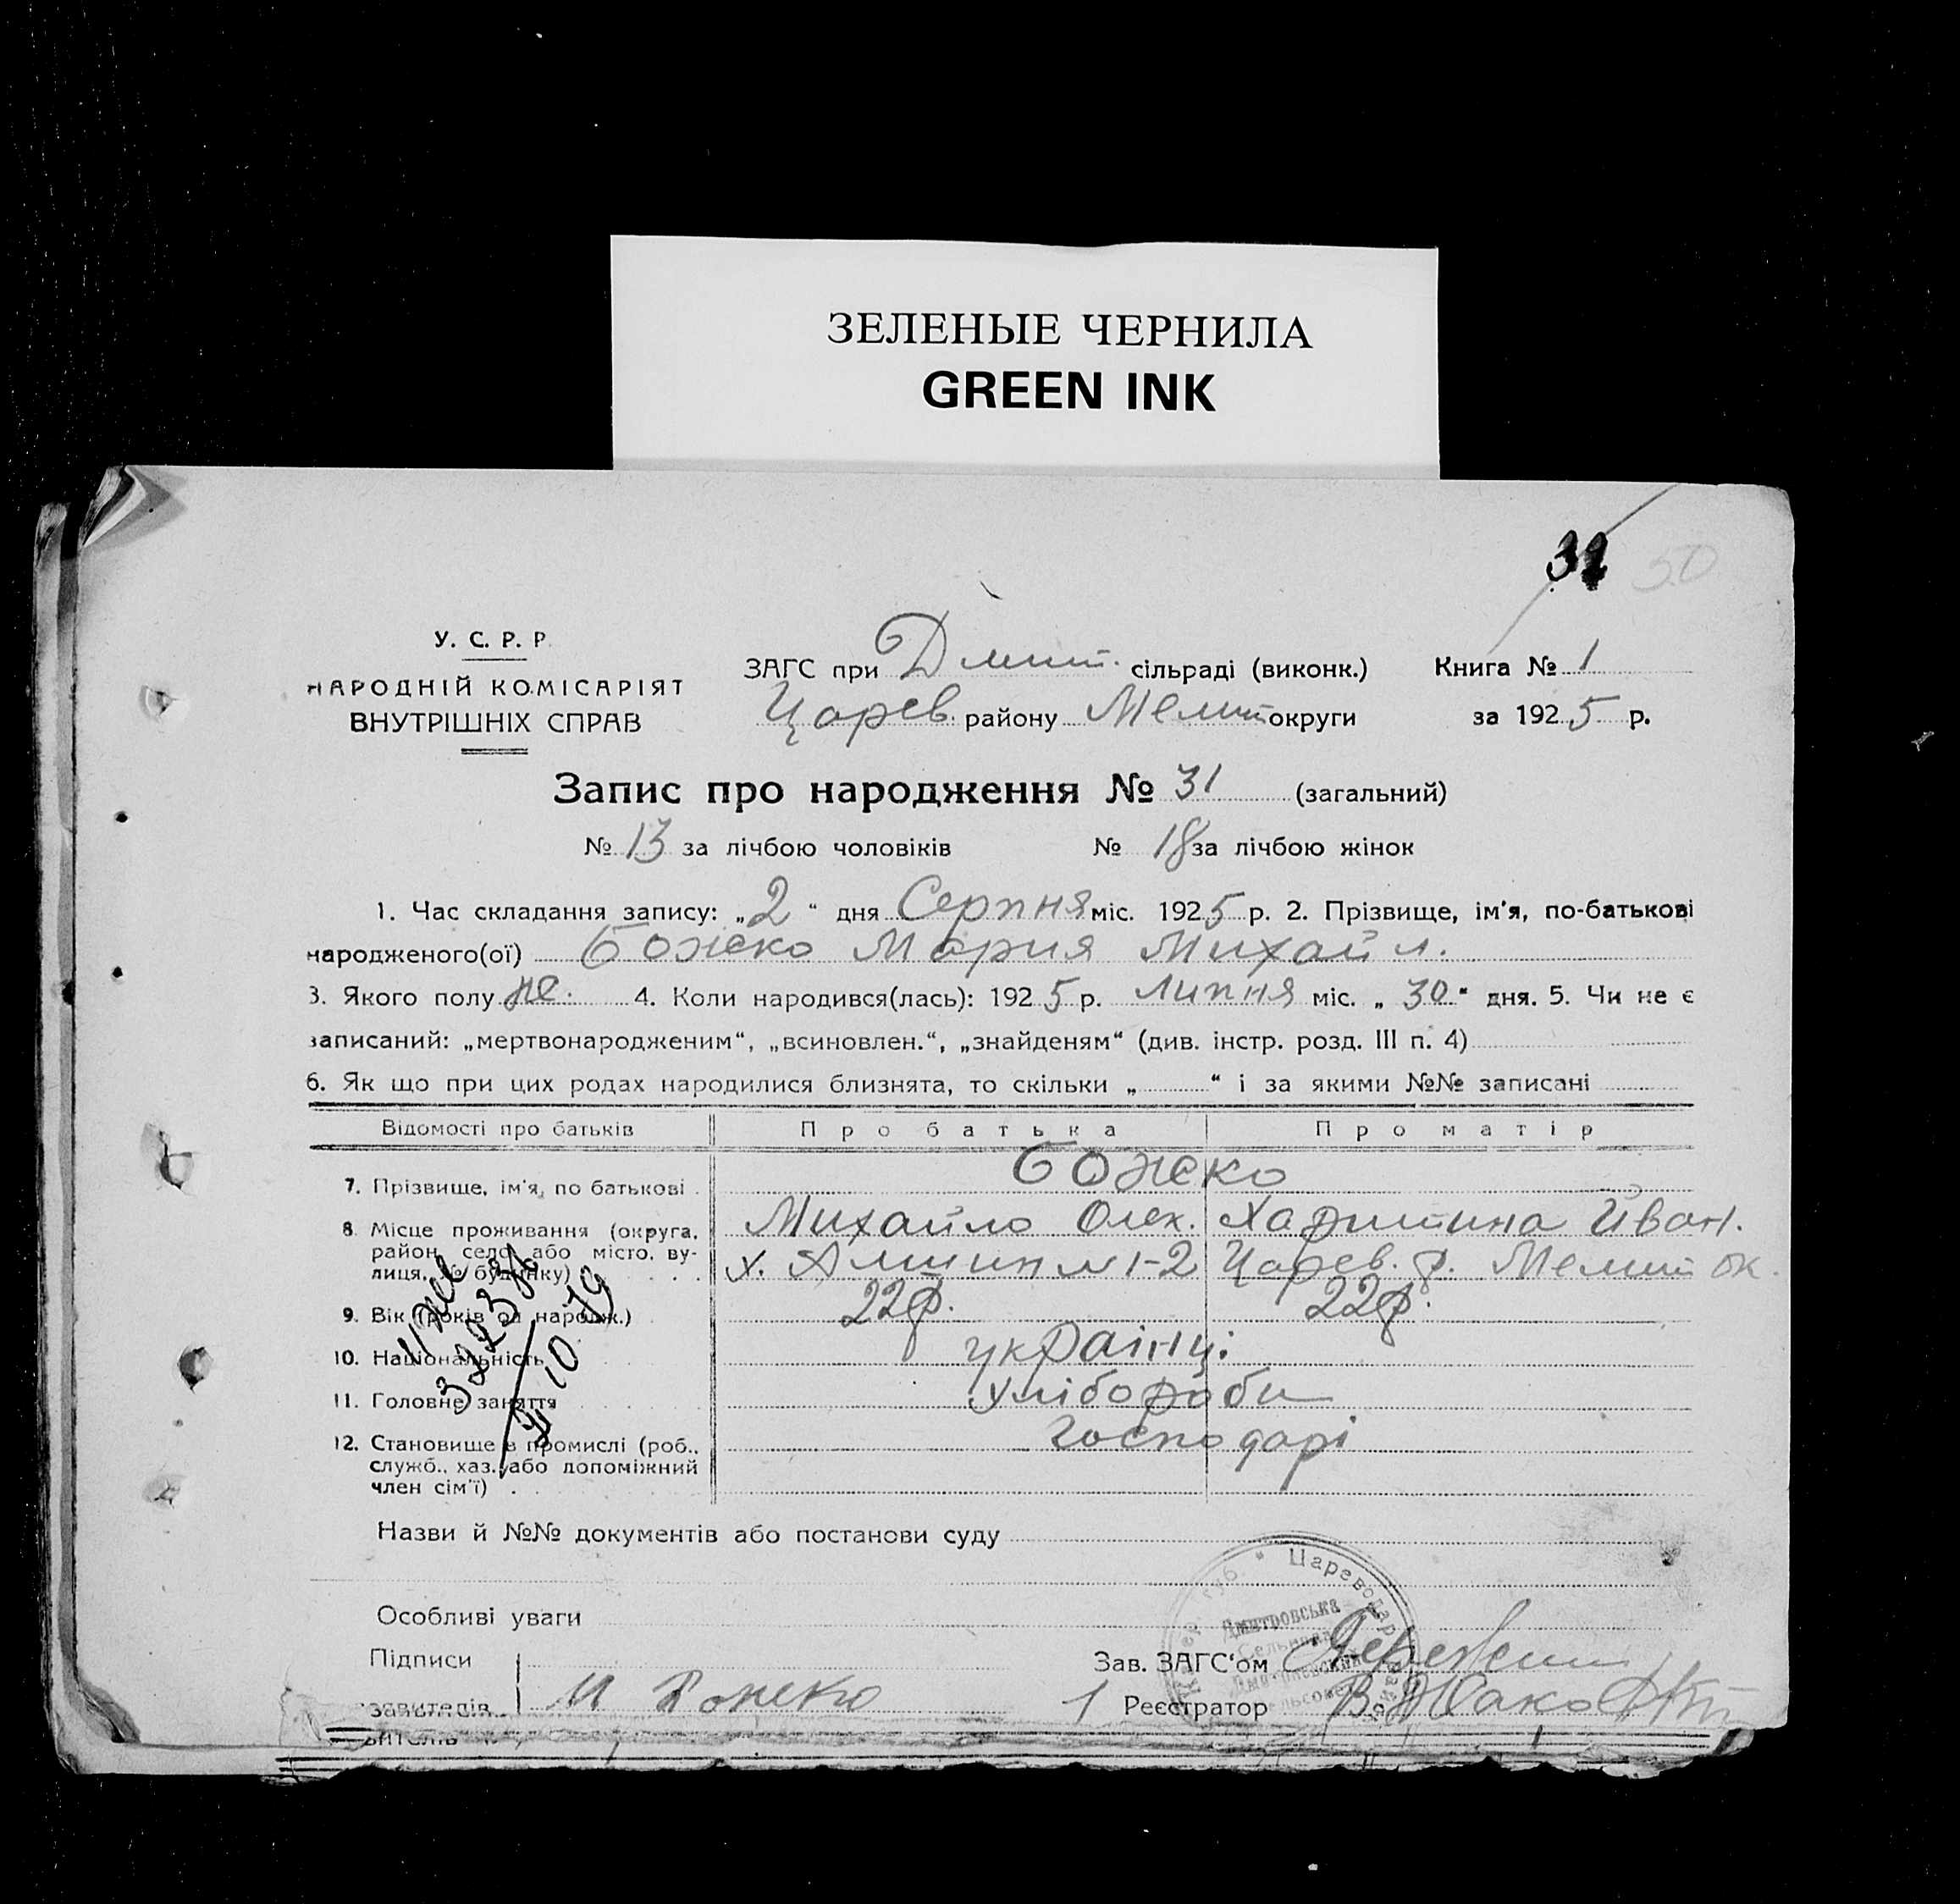 ЗЕЛЕНЫЕ ЧЕРНИЛА
GREEN INK
31 50
У. С. Р. Р
НАРОДНІЙ КОМІСАРІЯТ
ВНУТРІШНІХ СПРАВ
ЗАГС при Дмит. сільраді (виконк.) Книга № 1
Царев. району Мелит округи за 1925 р.
Запис про народження № 31 (загальний)
№ 13 за лічбою чоловіків № 18 за лічбою жінок
1. Час складання запису: „2“ дня Серпня міс. 1925 р. 2. Прізвище, ім'я, по-батькові
народженого(ої) Божко Мария Михайл.
3. Якого полу же. 4. Коли народився(лась): 1925 р. Липня міс. „30“ дня. 5. Чи не є
записаний: „мертвонародженим“, „всиновлен.“, „знайденям“ (див. інстр. розд. III п. 4)
6. Як що при цих родах народилися близнята, то скільки „ “ і за якими №№ записані
Відомості про батьків Про батька Про матір
Божко
7. Прізвище, ім'я, по батькові
Михайло Олек. Харитина Иван.
8. Місце проживання (округа,
район, село, або місто, ву-
лиця, № будинку)
х. №1-2 Царев. р. Мелит ок.
9. Вік (років од народж.) 22 р. 22 р.
10. Національність українці
11. Головне заняття хлібороби
12. Становище в промислі (роб.,
служб., хаз., або допоміжний
член сім'ї)
господарі
Назви й №№ документів або постанови суду
Особливі уваги
Царевода
Дмитровська
Підписи
заявителів М Божко
Зав. ЗАГС'ом
1 Реєстратор В.